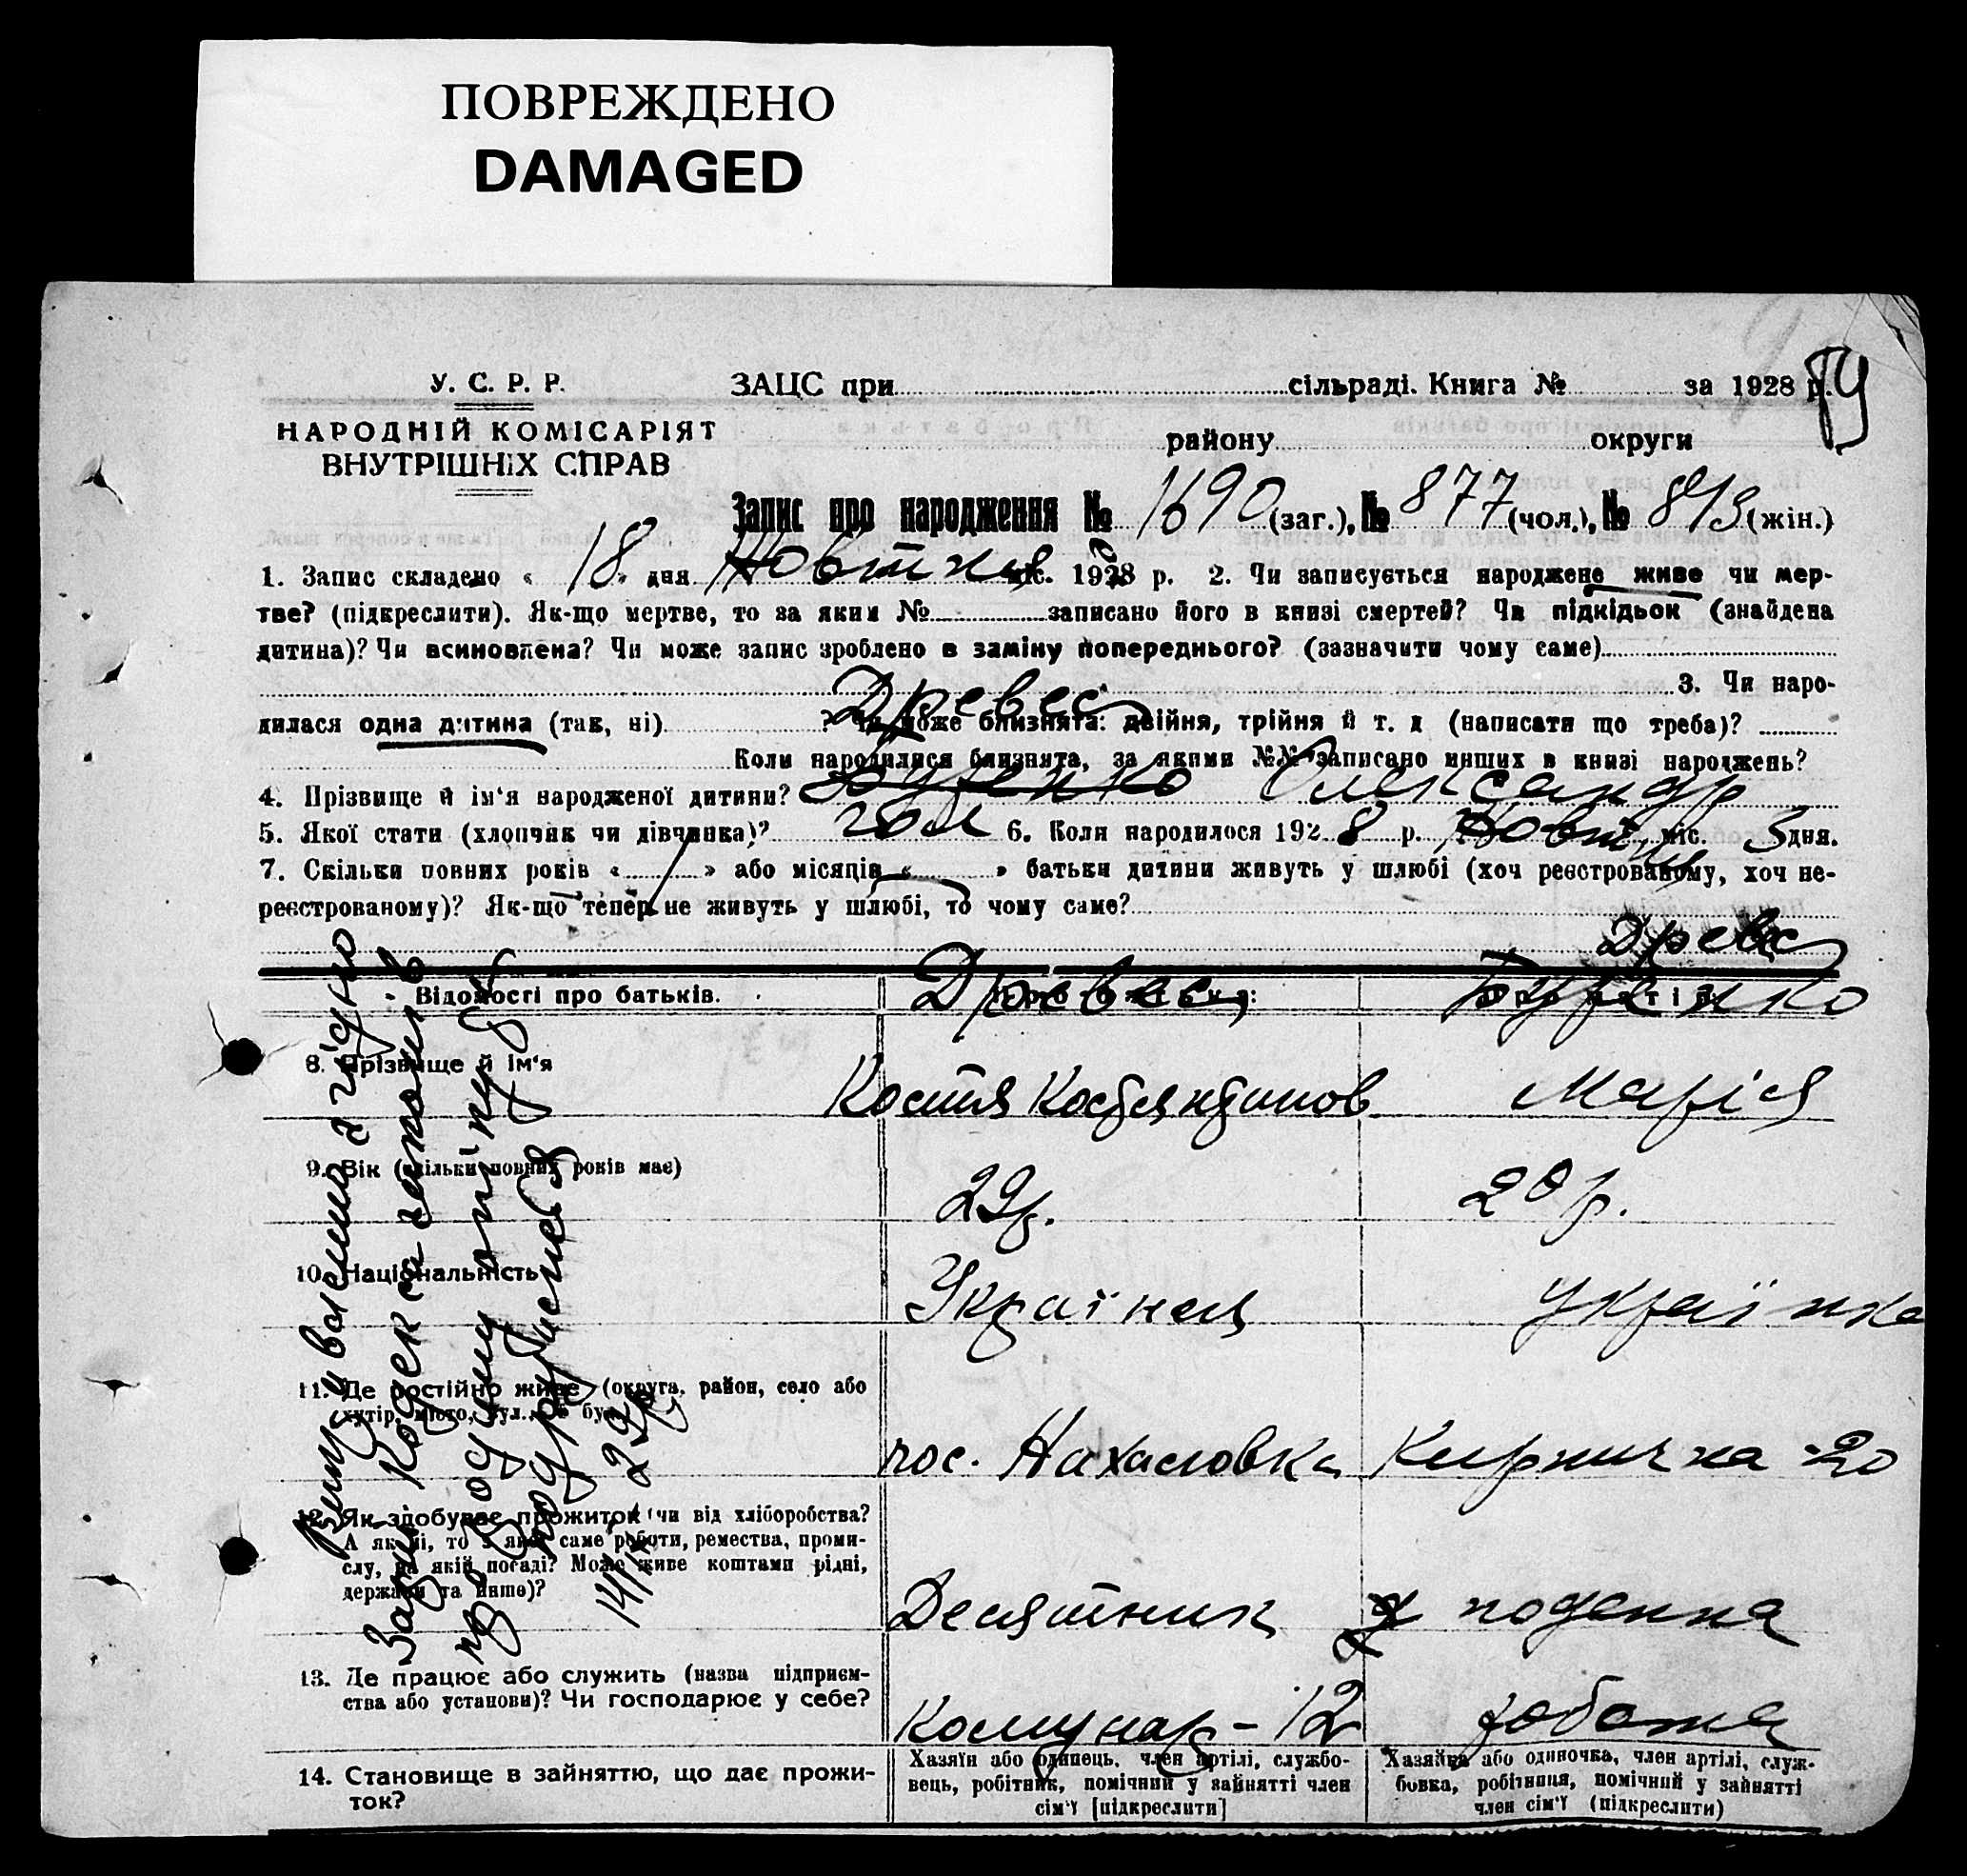 ПОВРЕЖДЕНО
DAMAGED
У. С. Р. Р.
НАРОДНІЙ КОМІСАРІЯТ
ВНУТРІШНІХ СПРАВ
ЗАЦС при сільраді. Книга № за 1928 р.
району округи
Запис про народження № 1690 (заг.), № 877 (чол.), № 813 (жін.)
1. Запис складено « 18 » дня Новтня міс. 1928 р. 2. Чи записується народжене живе чи мер-
тве? (підкреслити). Як-що мертве, то за яким № записано його в книзі смертей? Чи підкідьок (знайдена
дитина)? Чи всиновлена? Чи може запис зроблено в заміну попереднього? (зазначити чому саме)
3. Чи наро-
Древес
дилася одна дитина (так, ні) ? Чи може близнята: двійня, трійня й т. д (написати що треба)?
Коли народилися близнята, за якими №№ записано инших в книзі народжень?
4. Прізвище й ім'я народженої дитини? Олександр
5. Якої стати (хлопчик чи дівчинка)? чол 6. Коли народилося 1928 р. Новтня міс. 3 дня.
7. Скільки повних років « » або місяців « » батьки дитини живуть у шлюбі (хоч реєстрованому, хоч не-
реєстрованому)? Як-що тепер не живуть у шлюбі, то чому саме?
Древес
Відомості про батьків. Древес
8. Прізвище й ім'я Костя Костянтинов Марія
9. Вік (скільки повних років має) 29 р. 20 р.
10. Національність Українец Українка
11. Де постійно живе (округа, район, село або
хутір, місто, вул., № буд.)
пос. Нахаловка Кирпична - 20
12. Як здобуває прожиток чи від хліборобства?
А як ні, то з якої саме роботи, ремества, проми-
слу, на якій посаді? Може живе коштами рідні,
держави та инше)?
Десятник поденна
13. Де працює або служить (назва підприєм-
ства або установи)? Чи господарює у себе?
Комунар - 12 робота
14. Становище в зайняттю, що дає прожи-
ток?
Хазяїн або одинець, член артілі, службо-
вець, робітник, помічний у зайнятті член
сім'ї [підкреслити]
Хазяйка або одиночка, член артілі, служ-
бовка, робітниця, помічний у зайнятті
член сім'ї (підкреслити)
згідно
Кодекса законів
про родину опіку